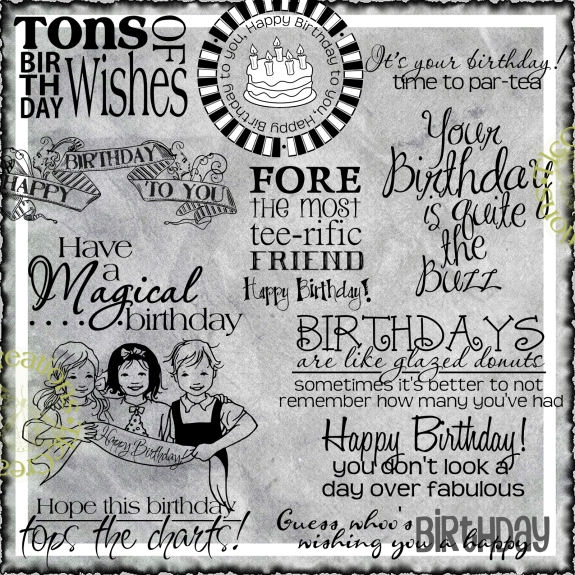 Tons OF
BIR
TH
DAY
Wishes
Happy Birthday to you, Happy Birthday to you,
It's your birthday!
time to par-tea
HAPPY BIRTHDAY TO YOU
Your
Birthday
is quite
the
Buzz
FORE
THE MOST
tee-rific
FRIEND
Happy Birthday!
Have
a
Magical
....birthday
BIRTHDAYS
are like glazed donuts
sometimes it's better to not
remember how many you've had
Happy Birthday
Happy Birthday!
you don't look a
day over fabulous
Hope this birthday
tops the charts!
Guess whoo's
wishing you a happy
BirtHDAY